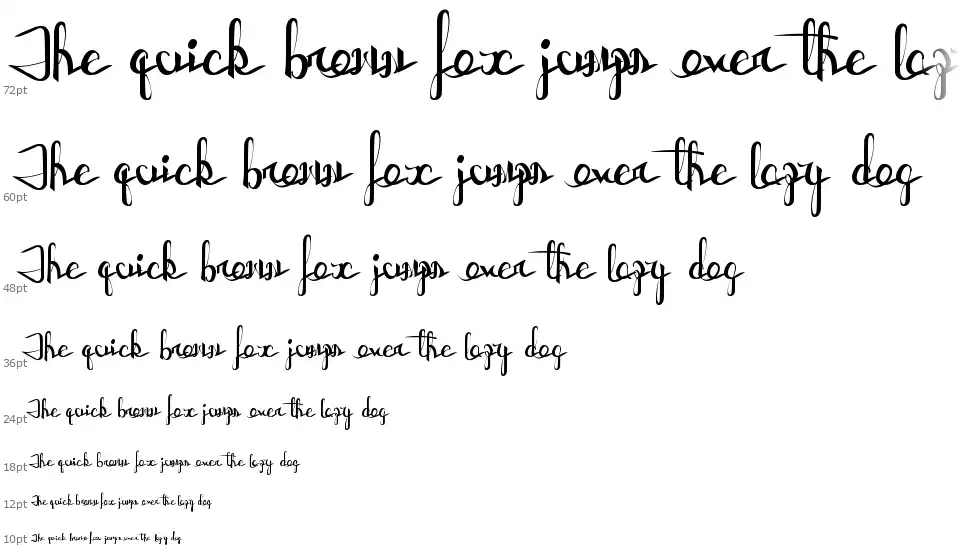 The quick brown fox jumps over the lazy
72pt
The quick brown fox jumps over the lazy dog
60pt
The quick brown fox jumps over the lazy dog
48pt
The quick brown fox jumps over the lazy dog
36pt
The quick brown fox jumps over the lazy dog
24pt
The quick brown fox jumps over the lazy dog
18pt
The quick brown fox jumps over the lazy dog
12pt
The quick brown fox jumps over the lazy dog
10pt